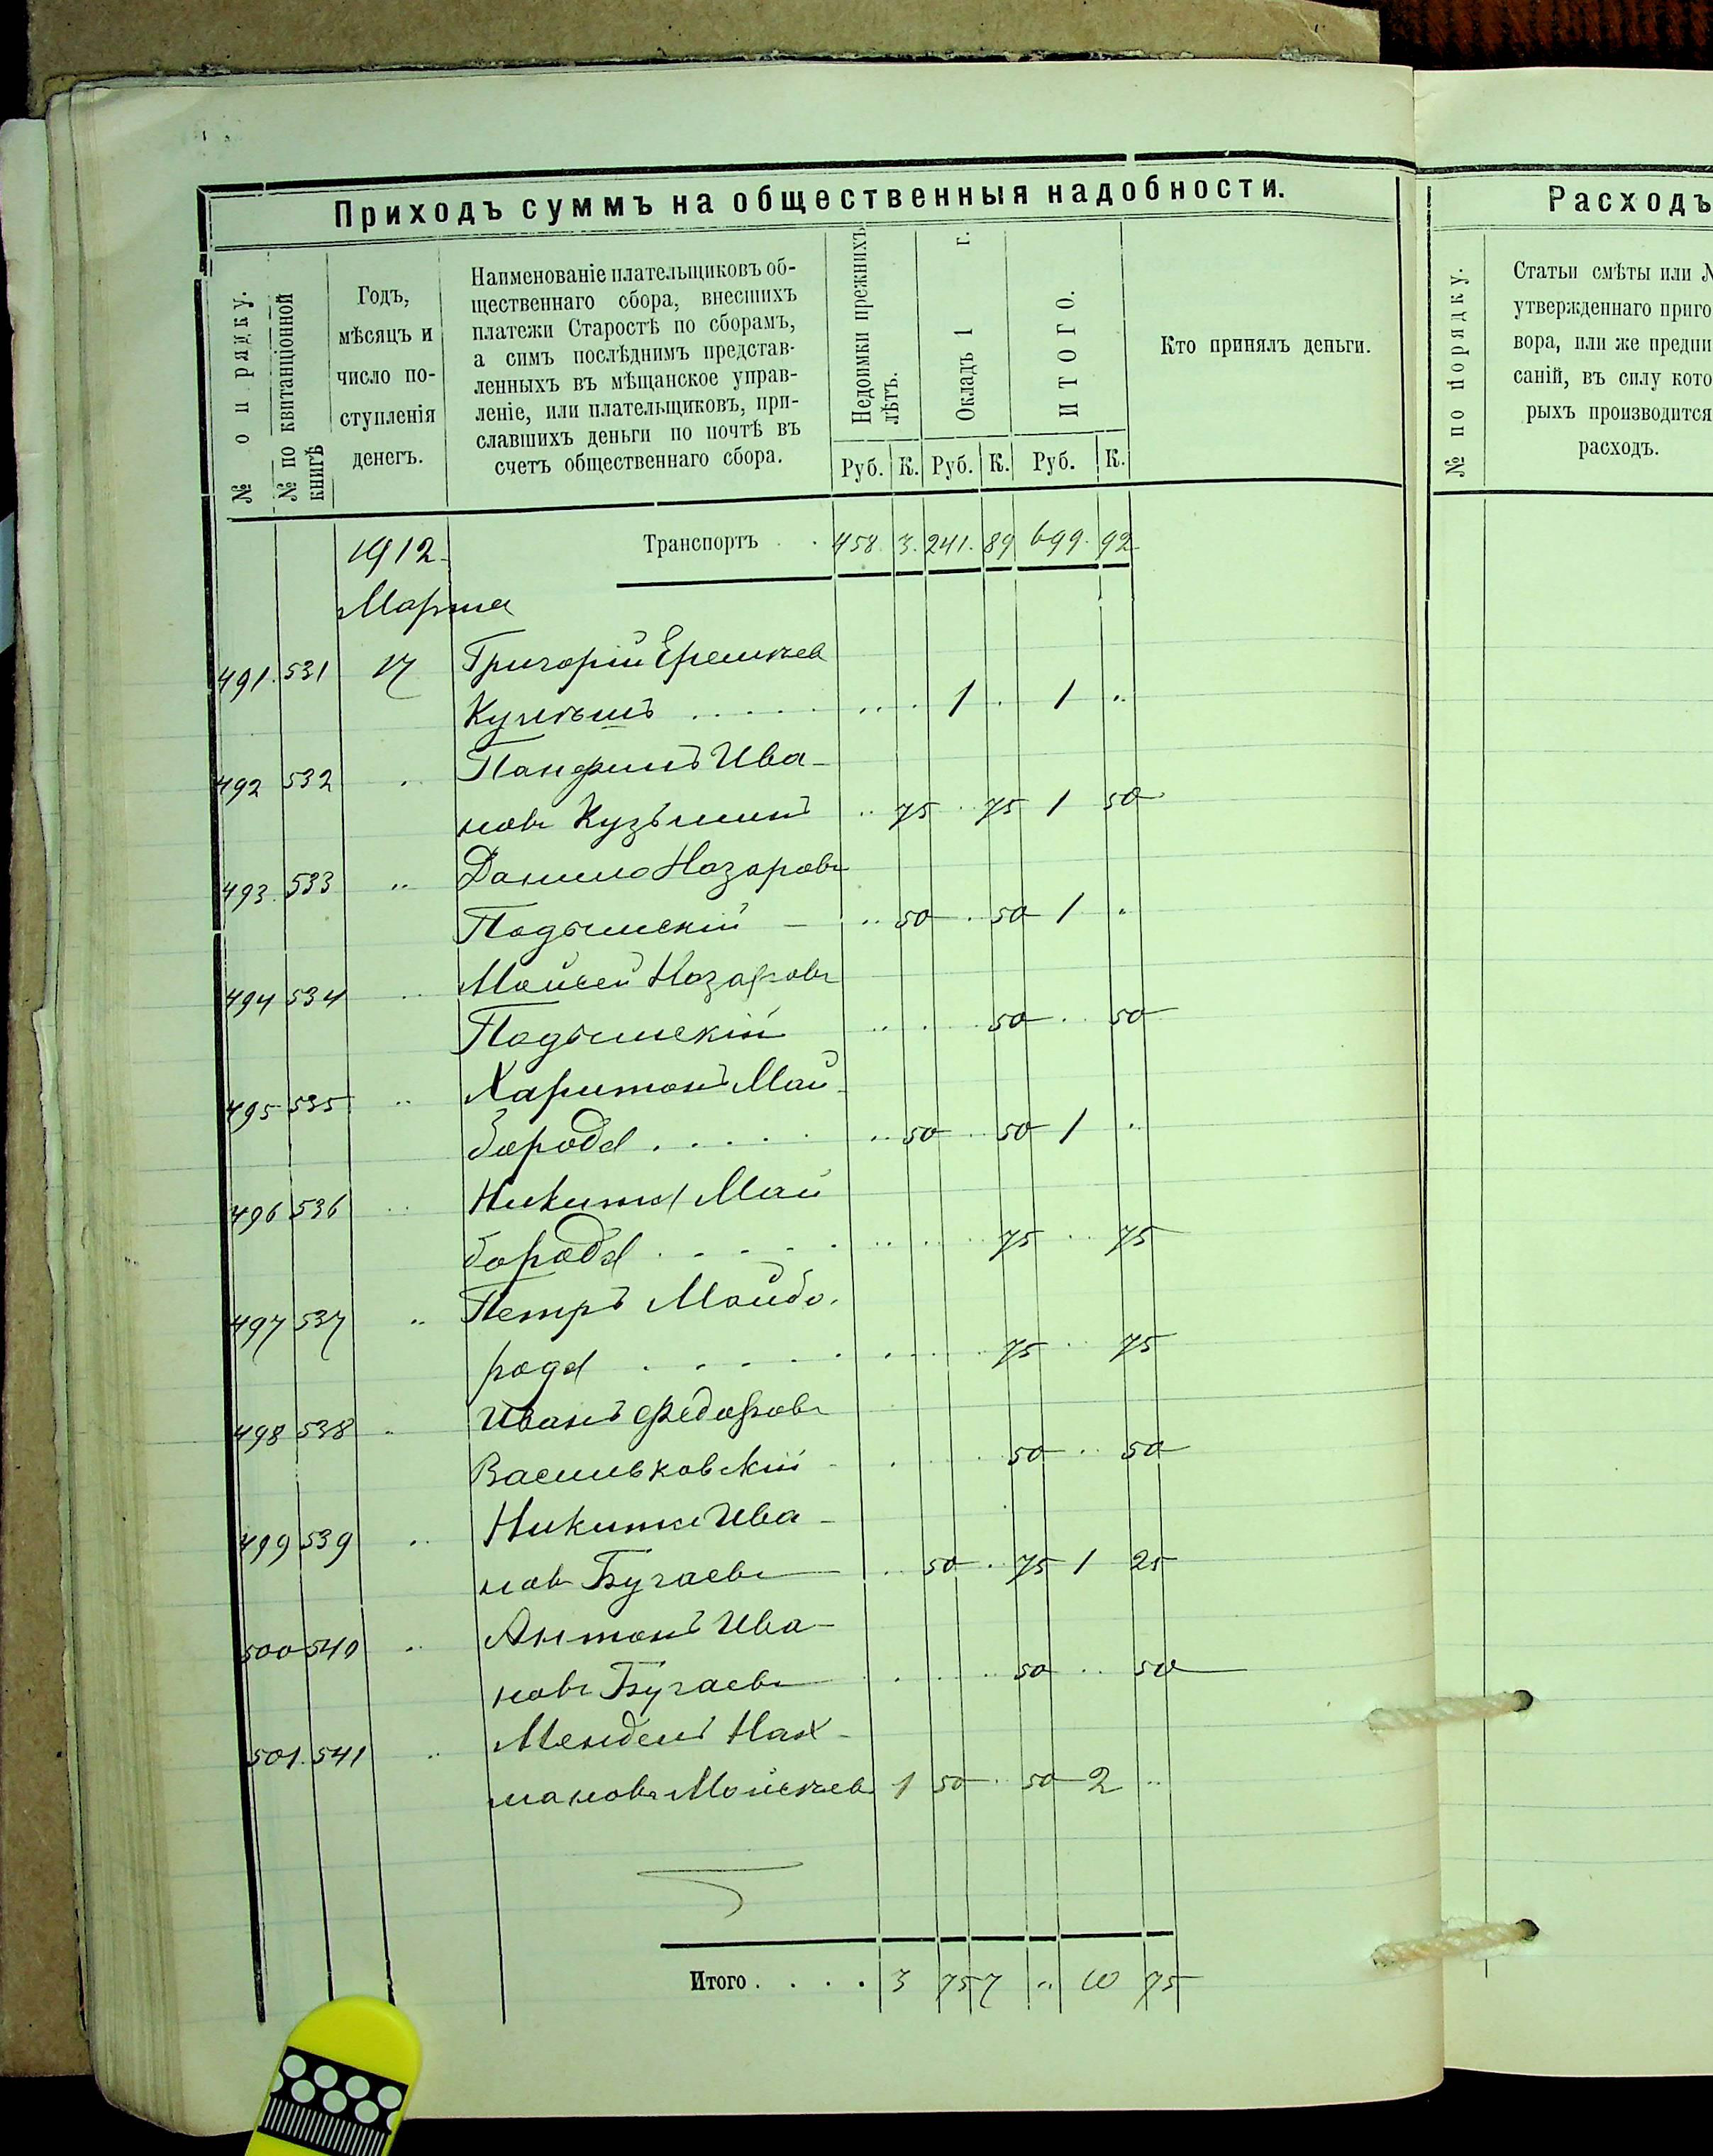 Приходъ суммъ на общественныя надобности.
№ о п рядку.
№ по квитанціонной книгѣ
Годъ,
мѣсяцъ и
число по-
ступленія
денегъ.
Наименованіе плательщиковъ об-
щественнаго сбора, внесшихъ
платежи Старостѣ по сборамъ,
а симъ послѣднимъ представ-
ленныхъ въ мѣщанское управ-
леніе, или плательщиковъ, при-
славшихъ деньги по почтѣ въ
счетъ общественнаго сбора.
Недоимки прежнихъ
лѣтъ.
Окладъ 1 г.
ИТОГО.
Руб. К. Руб. К. Руб. К.
Кто принялъ деньги.
1912 Транспортъ . . 458. 3. 241. 89 699. 92
Марта
491. 531 17 Григорій
. . . . . 1 . 1 ..
492 532 . Панфилъ Ива-
новъ Кузьминъ .. 75 . 75 1 50
493. 533 .. Данило Назаровъ
.. 50 . 50 1 .
494 534 .. Мойсей Назаровъ
.. . 50 . 50
495 535 .. Харитонъ Май-
борода . . . . . .. 50 .. 50 1 ..
496 536 .. Никита Май
борода . . . . . .. .. 75 .. 75
497 537 .. Петръ Майбо.
рода . . . . . . .. 75 .. 75
498 538 .. Иванъ Федоровъ
Васильковскій - . . 50 .. 50
499 539 .. Никита Ива-
новъ Бугаевъ . 50 . 75 1 25
500 540 .. Антонъ Ива-
новъ Бугаевъ . .. 50 .. 50
501. 541 .. Мендель Нах-
мановъ 1 50 .. 50 2 ..
Итого . . . . 3 75 7 .. 10 75
Расходъ
№ по порядку.
Статьи смѣты или №
утвержденнаго приго
вора, или же предпи
саній, въ силу кото
рыхъ производится
расходъ.